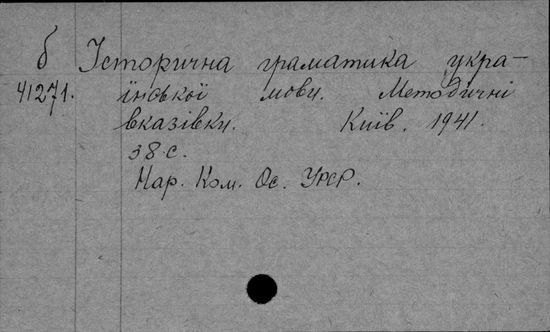 б Історична граматика укра-
41271. їнської мови. Методичні
вказівки. Київ. 1941.
38 с.
Нар. Ком. Ос. УРСР.